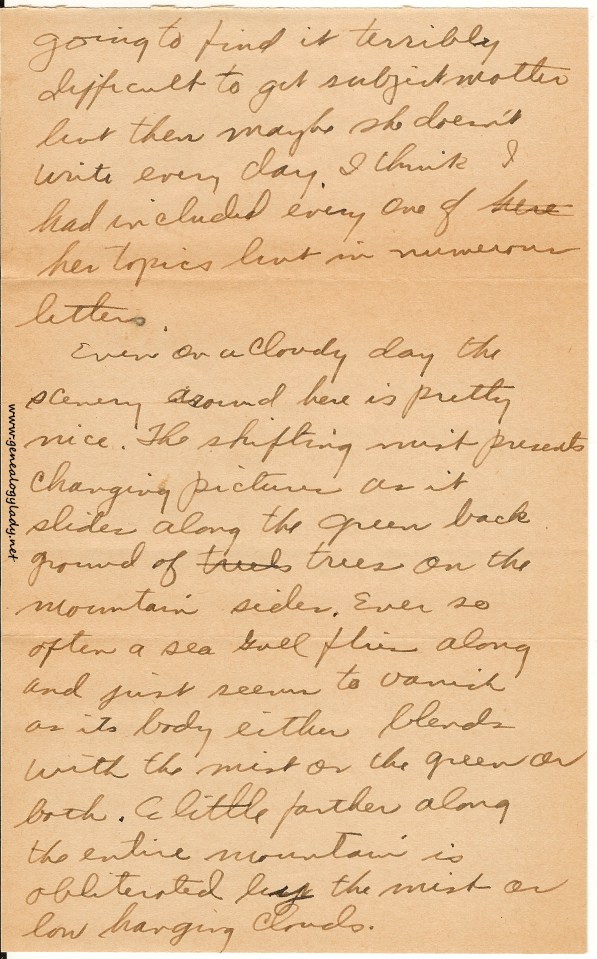 going to find it terribly
difficult to get subject matter
but then maybe she doesn't
write every day. I think I
had included every one of here
her topics but in numerous
letters.
Even on a cloudy day the
scenery around here is pretty
nice. The shifting mist presents
changing pictures as it
slides along the green back
ground of treels trees on the
mountain sides. Ever so
often a sea gull flies along
and just seems to vanish
as its body either blends
with the mist or the green or
both. A little farther along
the entire mountain is
obliterated by the mist or
low hanging clouds.
www.genealogylady.net